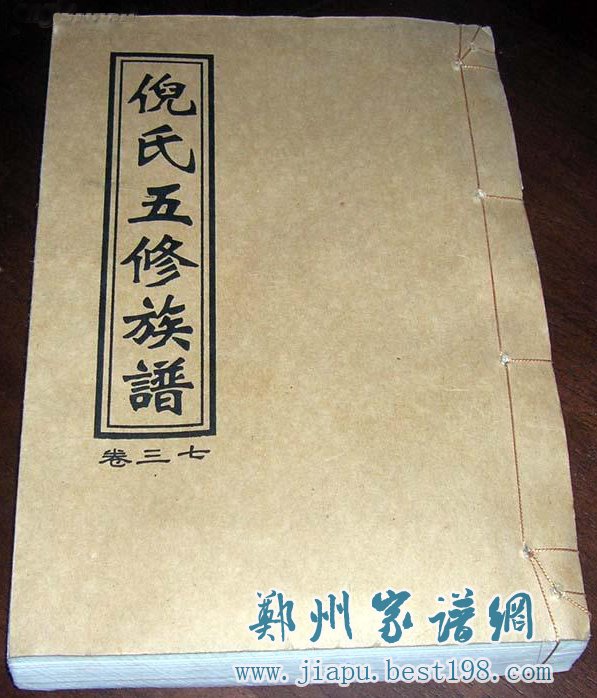 倪氏五修族譜
卷三七
郑州家谱網
www.jiapu.best198.com